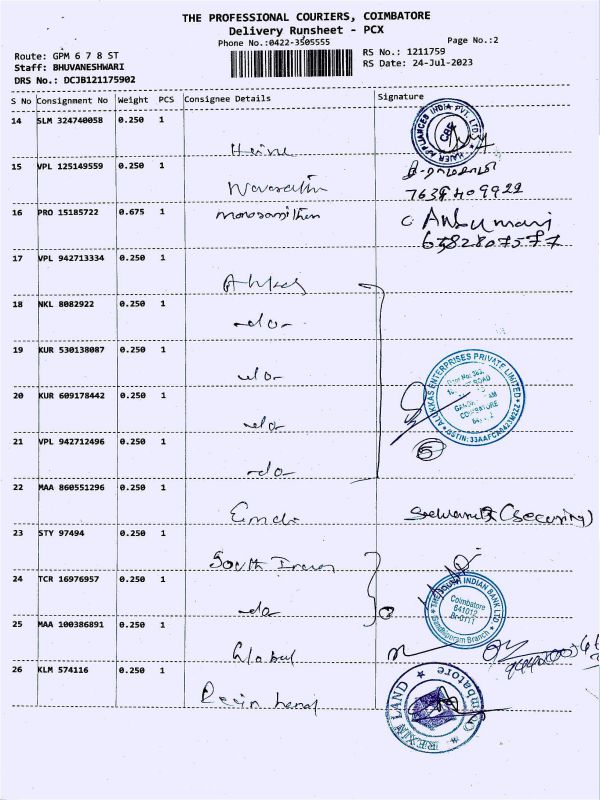 THE PROFESSIONAL COURIERS, COIMBATORE
Delivery Runsheet - PCX
Phone No.:0422-3505555
Page No.:2
Route: GPM 6 7 8 ST
Staff: BHUVANESHWARI
DRS No.: DCJB121175902
RS No.: 1211759
RS Date: 24-Jul-2023
S No Consignment No Weight PCS Consignee Details Signature
14 SLM 324740058 0.250 1
15 VPL 125149559 0.250 1
7639409922
16 PRO 15185722 0.675 1
17 VPL 942713334 0.250 1
18 NKL 8082922 0.250 1 -do-
19 KUR 530138087 0.250 1 -do-
20 KUR 609178442 0.250 1 -do-
ALUKKAS ENTERPRISES PRIVATE LIMITED
COIMBATORE
21 VPL 942712496 0.250 1 -do-
5
22 MAA 860551296 0.250 1
(Security)
23 STY 97494 0.250 1 South Indian
24 TCR 16976957 0.250 1 -do-
THE SOUTH INDIAN BANK LTD
Coimbatore
641012
Br-0111
Gandhipuram Branch
25 MAA 100386891 0.250 1 Global
26 KLM 574116 0.250 1
REXIN LAND
Coimbatore